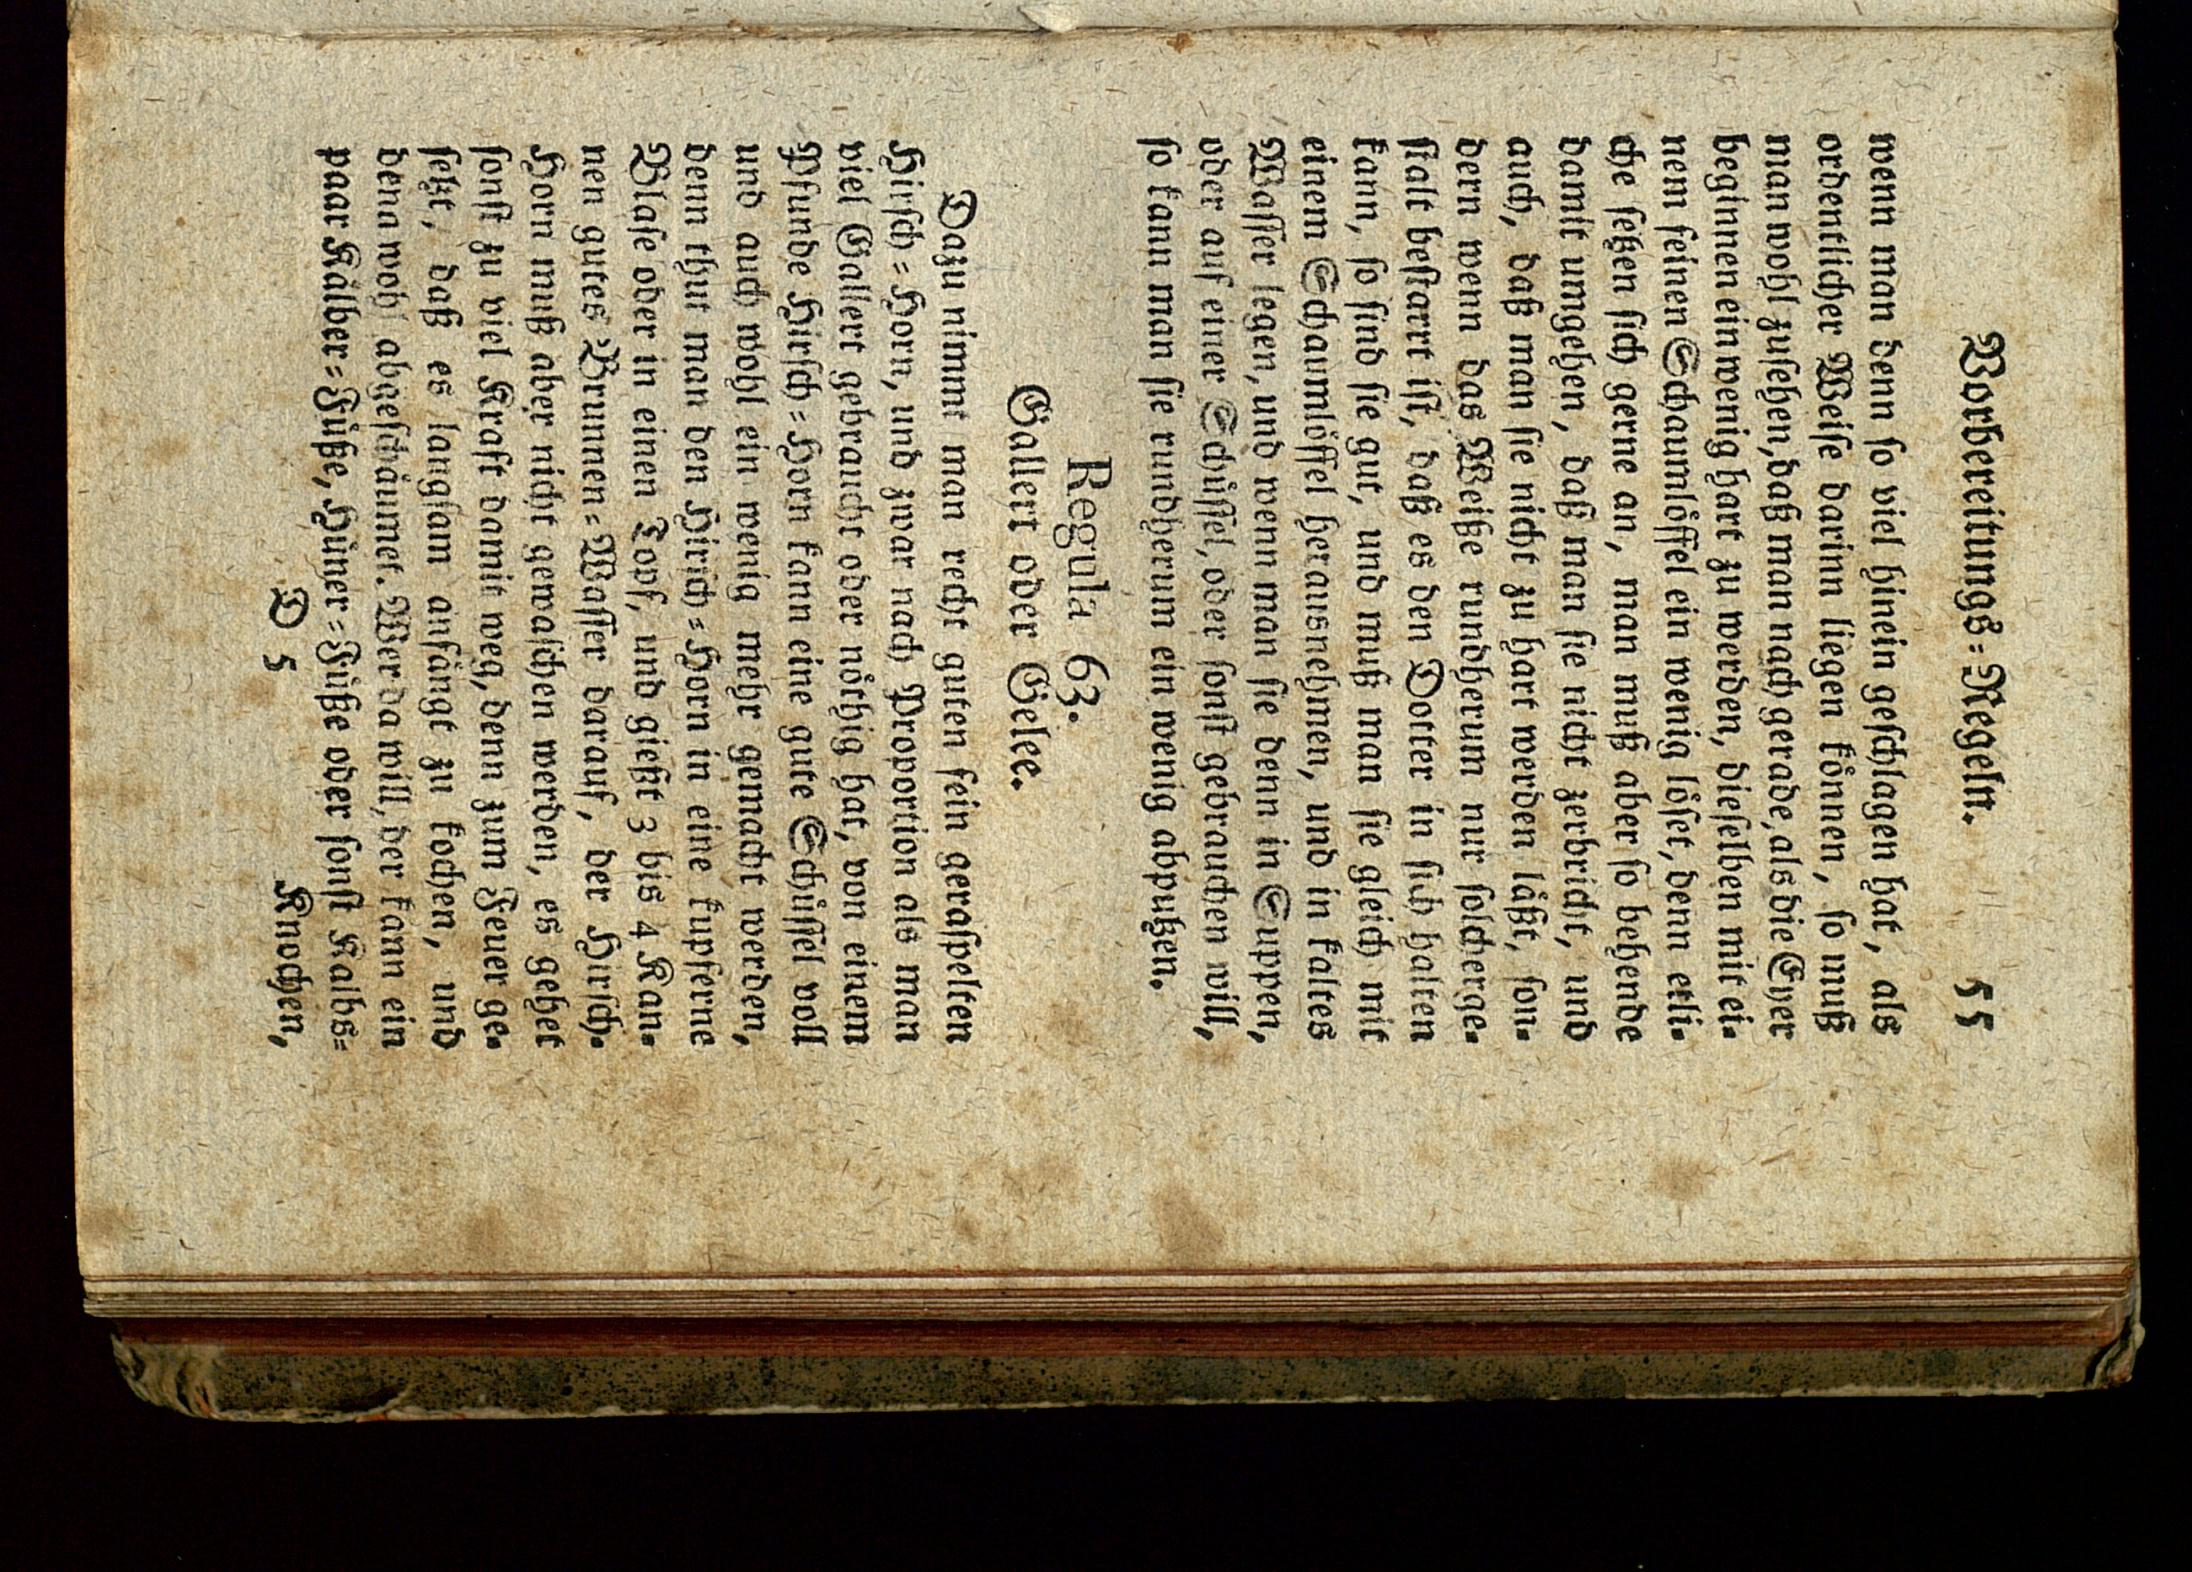 Vorbereitungs=Regeln. 55
wenn man denn so viel hinein geschlagen hat, als
ordentlicher Weise darinn liegen können, so muß
man wohl zusehen, daß man nach gerade, als die Eyer
beginnen ein wenig hart zu werden, dieselben mit ei-
nen feinen Schaumlöffel ein wenig löset, denn etli-
che setzen sich gerne an, man muß aber so behende
damit umgehen, daß man sie nicht zerbricht, und
auch, daß man sie nicht zu hart werden läßt, son-
dern wenn das Weiße rundherum nur solcherge-
stalt bestarrt ist, daß es den Dotter in sich halten
kann, so sind sie gut, und muß man sie gleich mit
einem Schaumlöffel herausnehmen, und in kaltes
Wasser legen, und wenn man sie denn in Suppen,
oder auf einer Schüssel, oder sonst gebrauchen will,
so kann man sie rundherum ein wenig abputzen.
Regula 63.
Gallert oder Gelee.
Dazu nimmt man recht guten fein geraspelten
Hirsch=Horn, und zwar nach Proportion als man
viel Gallert gebraucht oder nöthig hat, von einem
Pfunde Hirsch=Horn kann eine gute Schüssel voll
und auch wohl ein wenig mehr gemacht werden,
denn thut man den Hirsch=Horn in eine kupferne
Blase oder in einen Topf, und gießt 3 bis 4 Kan-
nen gutes Brunnen=Wasser darauf, der Hirsch-
Horn muß aber nicht gewaschen werden, es gehet
sonst zu viel Kraft damit weg, denn zum Feuer ge-
setzt, daß es langsam anfängt zu kochen, und
denn wohl abgeschäumet. Wer da will, der kann ein
paar Kälber=Füße, Hüner=Füße oder sonst Kalbs=
D 5 Knochen,